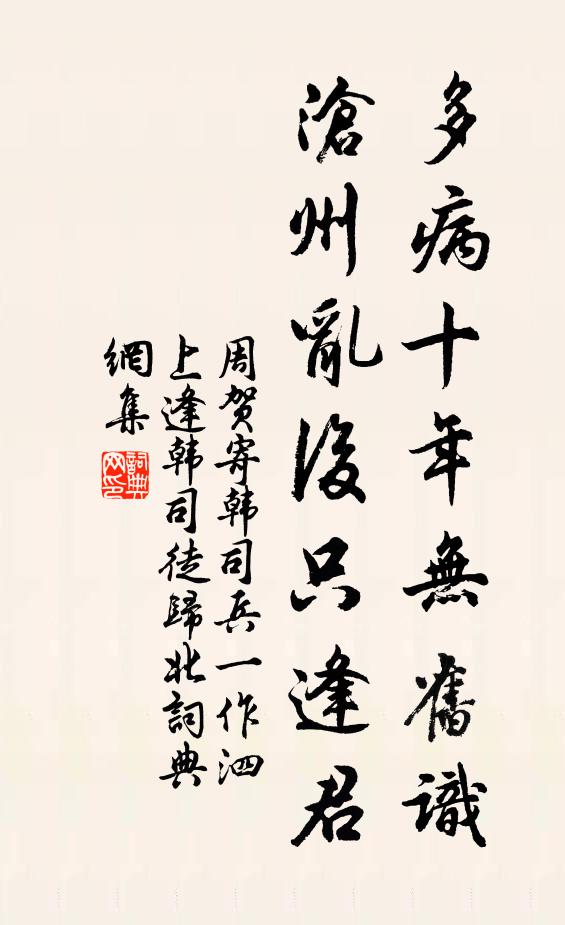 多病十年無舊識
滄州亂後只逢君
周贺寄韩司兵一作泗
上逢韩司徒歸北詞典
網集
詞典
网印